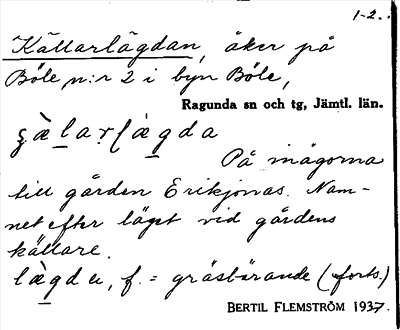 1-2.
Källarlägdan, åker på
Böle n:r 2 i byn Böle,
Ragunda sn och tg, Jämtl. län.
På inägorna
till gården Erikjonas. Nam-
net efter läget vid gårdens
källare.
lägdu, f. = gräsbärande (forts.)
BERTIL FLEMSTRÖM 1937.